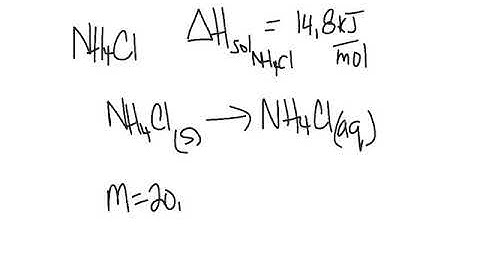 NH4Cl ΔHsolNH4Cl = 14,8 kJ/mol
NH4Cl(s) → NH4Cl(aq)
M=20,